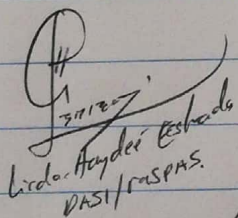 Licda. Haydeé Estrada
DASI/MSPAS.